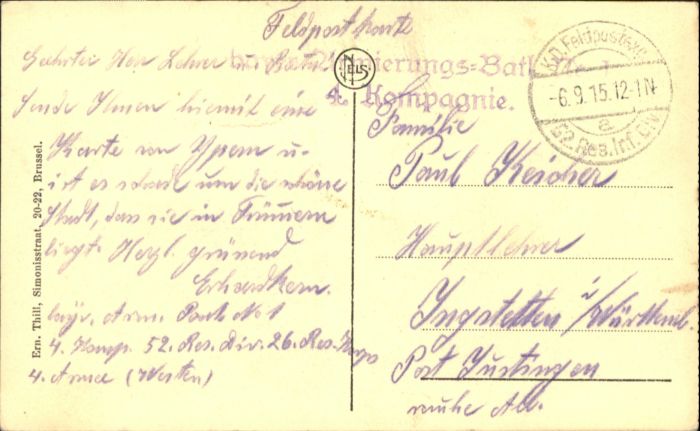 Feldpostkarte
Geehrter Herr Lehrer u.
Sende Ihnen hiermit eine
Karte von Ypern u.
ist es schade um die schöne
Stadt, das sie in Trümmern
liegt. Herzl. grüssend
Erhardkern.
bayr. Arm. Batl. No 1
4. Komp. 52. Res. Div. 26. Res. Korps
4. Armee (Westen)
ierungs-Batl.
4. Kompagnie.
NELS
K.D. Feldpostexp.
-6.9.15.12-1N
a
52. Res. Inf. Div.
Familie
Paul Keicher
Hauptlehrer
Ingstetten i/Württemb.
Post Justingen
rauhe Alb.
Ern. Thill, Simonisstraat, 20-22, Brussel.